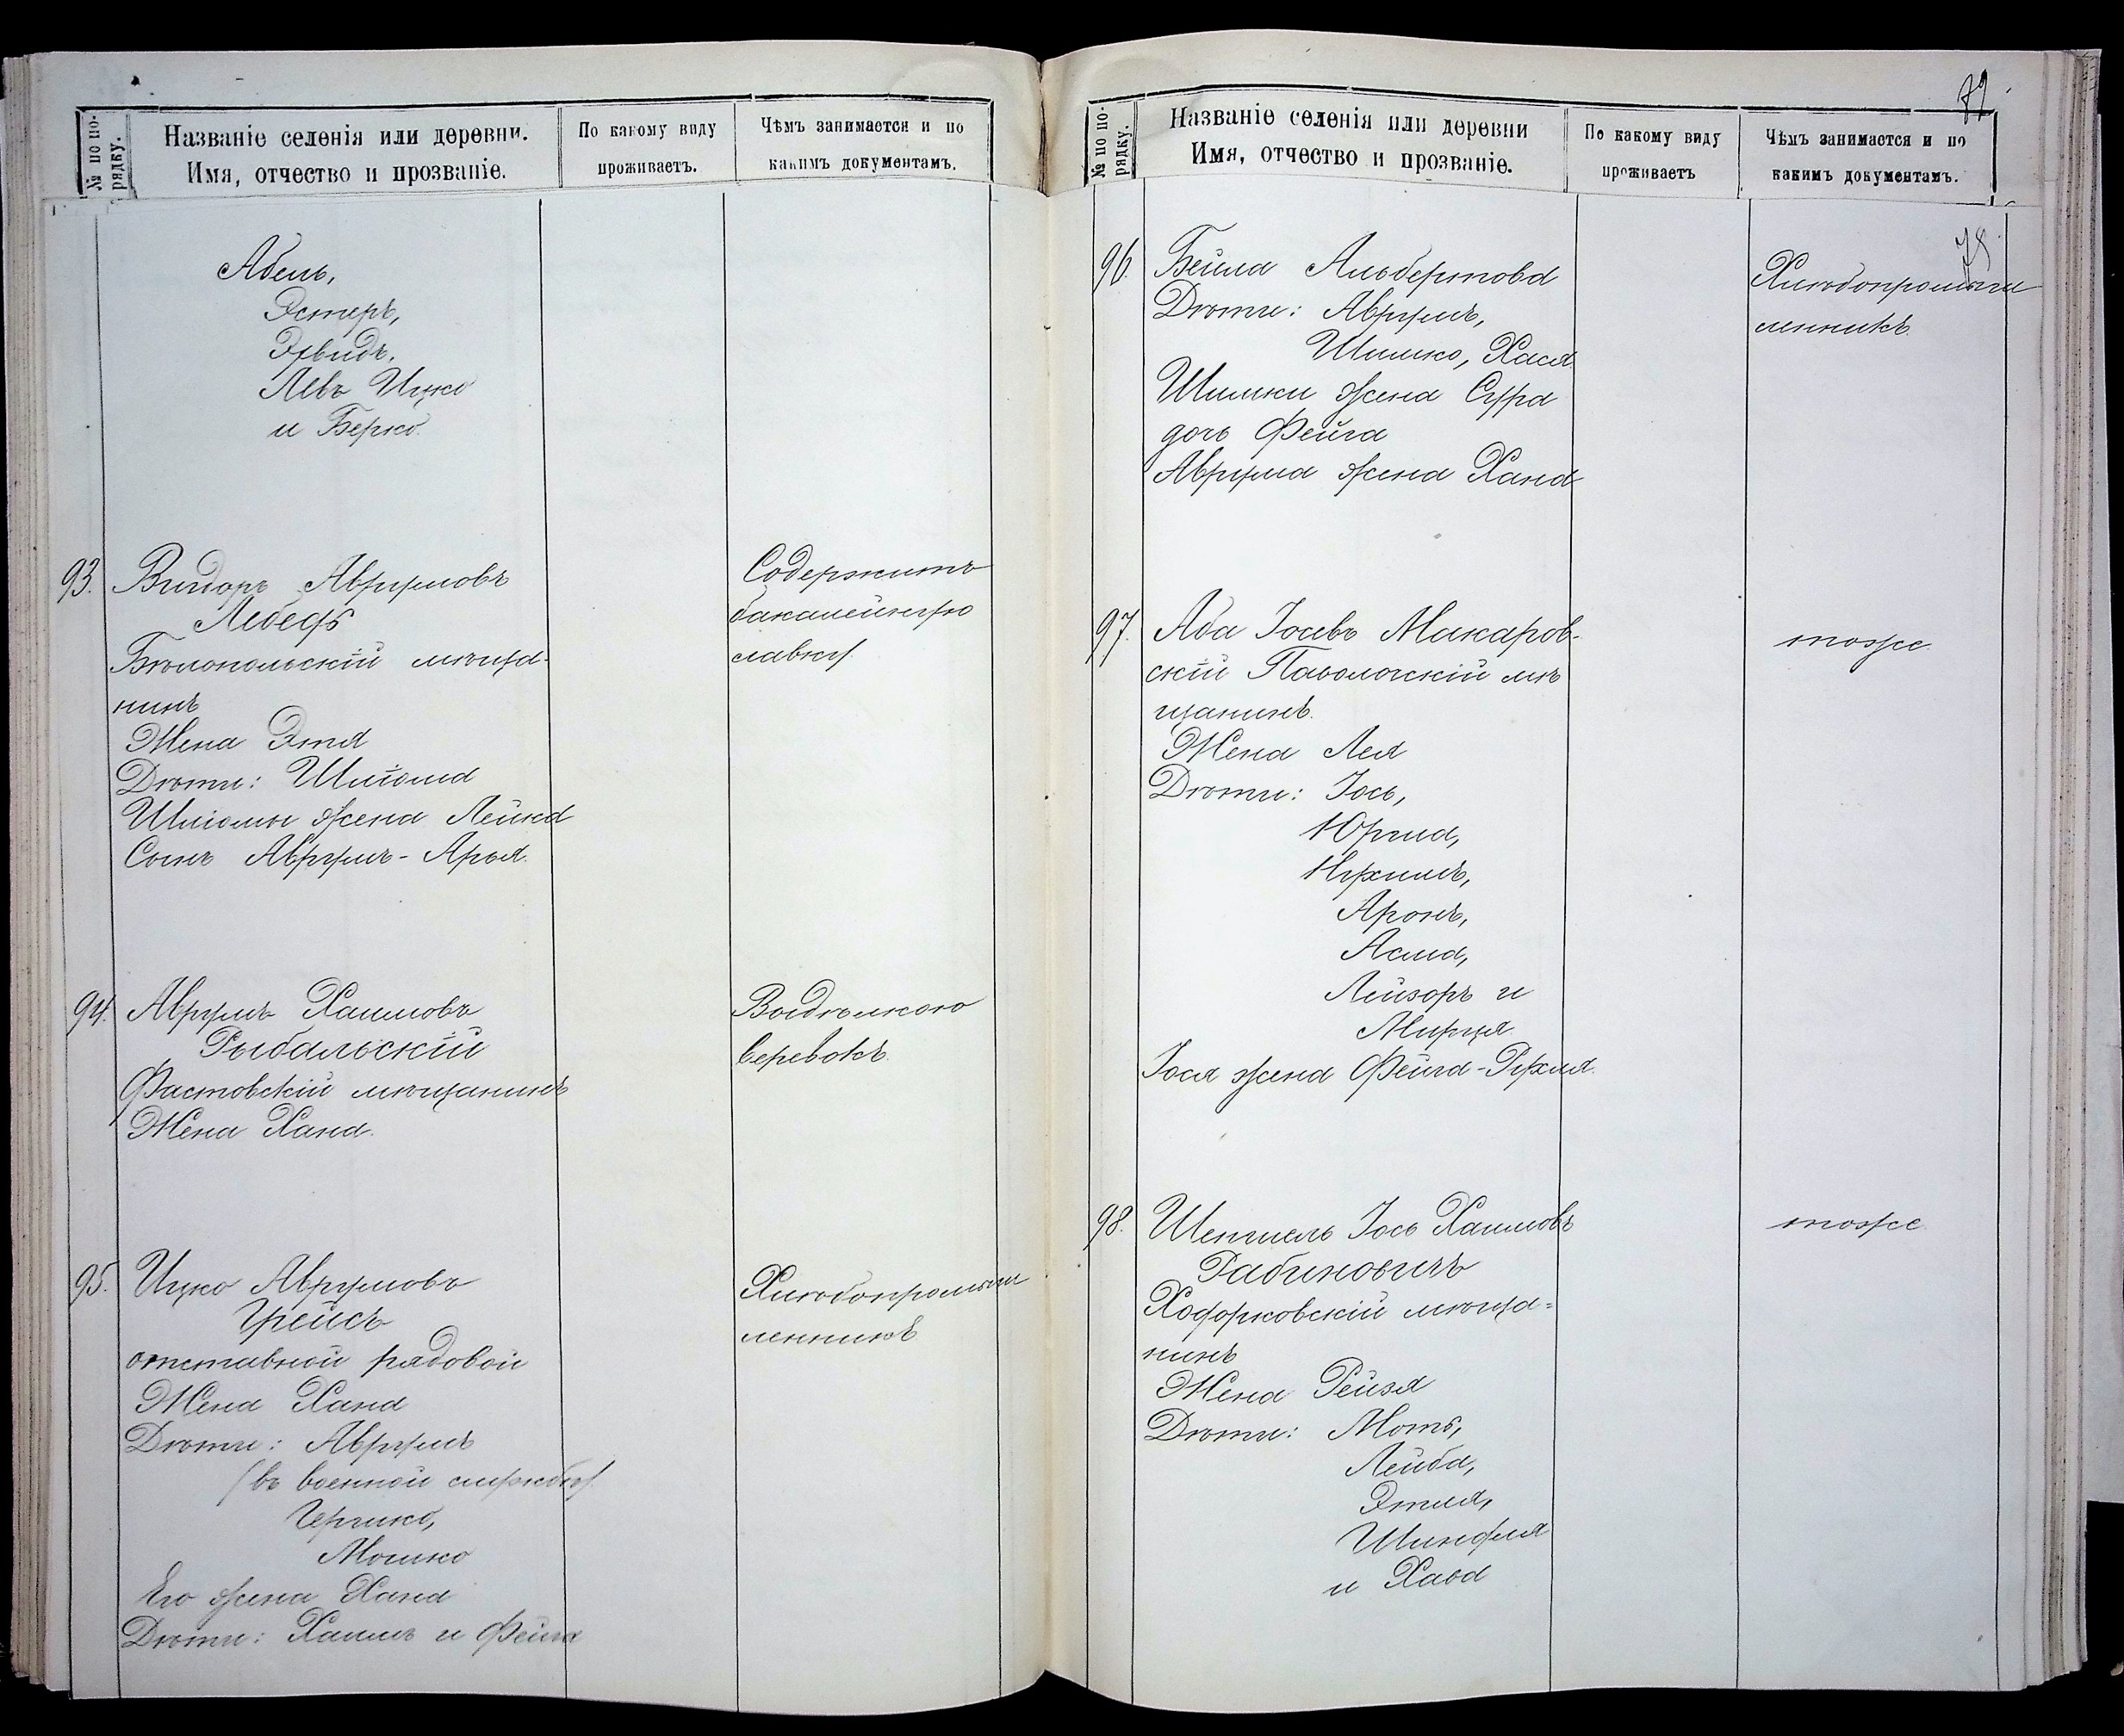 № по по-
рядку.
Названіе селенія или деревни.
Имя, отчество и прозваніе.
По какому виду
проживаетъ.
Чѣмъ занимается и по
какимъ документамъ.
Абель,
Эстеръ,
Лѣвъ Ицко
и Берко.
93.
Авр­умовъ
Лебедь
Бѣлопольскій мѣща-
нинъ
Жена Этя
Дѣти: Шліома
Шліомы жена Лейка
Сынъ Аврумъ-Арья.
Содержитъ
бакалейную
лавку.
94.
Аврумъ Хаимовъ
Рыбальскій
Фастовскій мѣщанинъ
Жена Хана.
Выдѣлкою
веревокъ
95.
Ицко Аврумовъ
Грейсъ
отставной рядовой
Жена Хана
Дѣти: Аврумъ
(въ военной службѣ)
Гершко,
Мошко
Его жена Хана
Дѣти: Хаимъ и Фейга
Хлѣбопромыш
ленникъ
79.
№ по по-
рядку.
Названіе селенія или деревни
Имя, отчество и прозваніе.
По какому виду
проживаетъ
Чѣмъ занимается и по
какимъ документамъ.
78
96.
Бейла Альбертова
Дѣти: Аврумъ,
Шимко, Хася
Шимки жена Сура
дочь Фейга
Аврума жена Хана
Хлѣбопромыш
ленникъ.
97.
Аба Іосевъ Макаров-
скій Паволочскій мѣ
щанинъ.
Жена Лея
Дѣти: Іось,
Нухимъ,
Аронъ,
Лейзоръ и
Мирця
Іося жена Фейга-Рухля.
тоже
98.
Іось Хаимовъ
Рабиновичъ
Ходорковскій мѣща=
нинъ
Жена Рейзя
Дѣти: Мотъ,
Лейба,
Этля,
Шиндля
и Хава
тоже